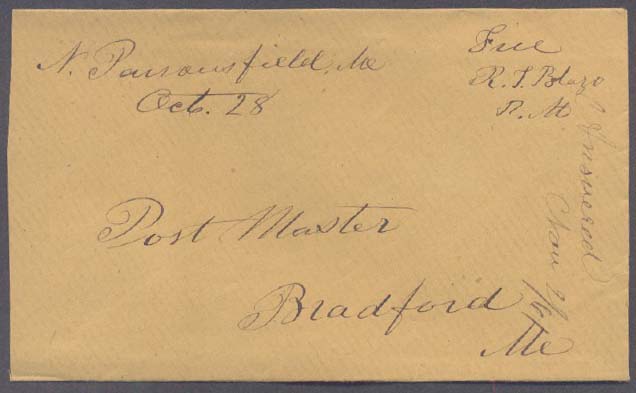 N. Parsonsfield, Me
Oct. 28
Free
R. T. Blazo
P. M
Post Master
Bradford
Me
Answered
Nov 2